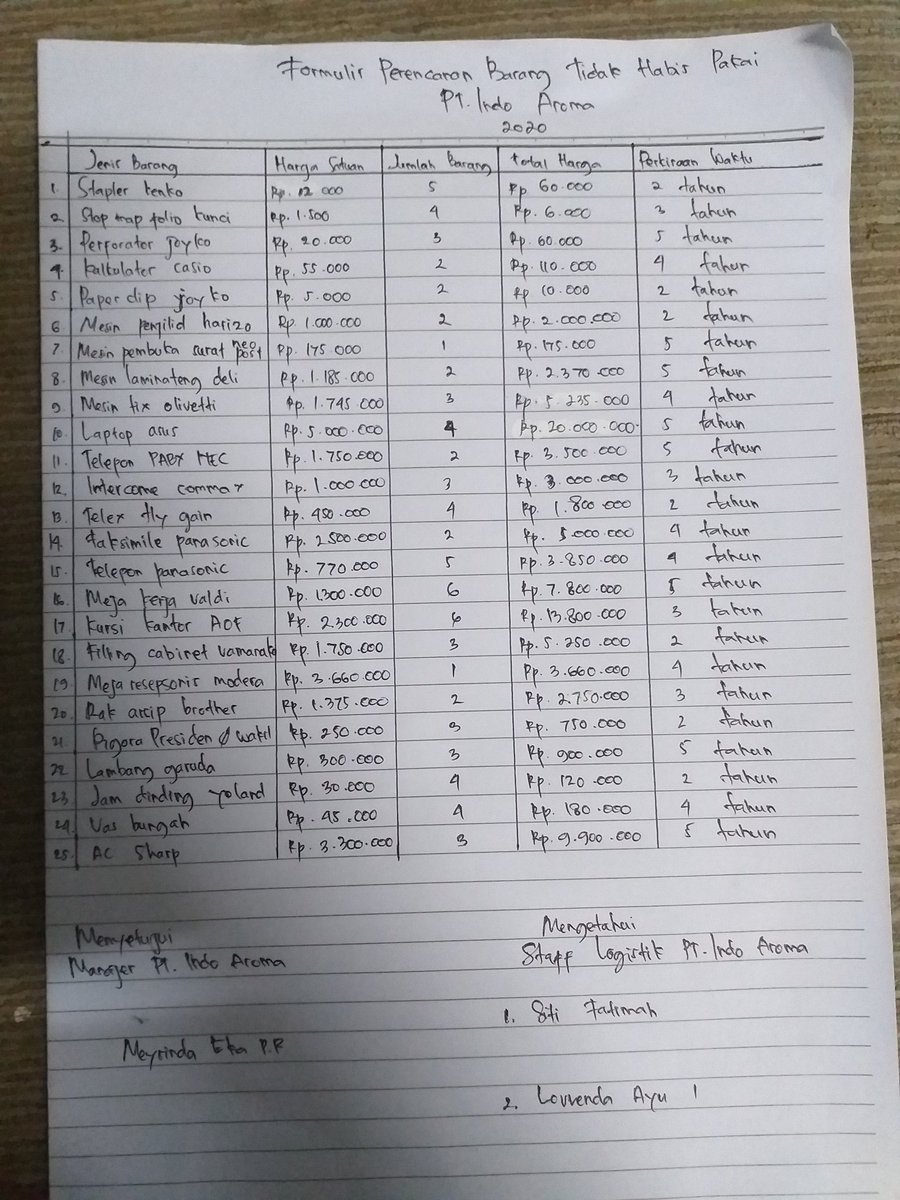 Formulir Perencanan Barang Tidak Habis Pakai
PT. Indo Aroma
2020
Jenis Barang Harga Satuan Jumlah Barang Total Harga Perkiraan Waktu
1. Stapler kenko Rp. 12 000 5 Rp 60.000 2 tahun
2 Stop map folio kunci Rp. 1.500 4 Rp. 6.000 3 tahun
3. Perforator joyko Rp. 20.000 3 Rp. 60.000 5 tahun
4. kalkulater casio Rp. 55.000 2 Rp. 110.000 4 tahun
5. Paper clip joyko Rp. 5.000 2 Rp 10.000 2 tahun
6 Mesin penjilid harizo Rp. 1.000.000 2 Rp. 2.000.000 2 tahun
7. Mesin pembuka surat neo post Rp. 175 000 1 Rp. 175.000 5 tahun
8. Mesin laminateng deli Rp. 1.185.000 2 Rp. 2.370.000 5 tahun
9. Mesin tix olivetti Rp. 1.745.000 3 Rp. 5.235.000 4 tahun
10. Laptop asus Rp. 5.000.000 4 Rp. 20.000.000 5 tahun
11. Telepon PABX NEC Rp. 1.750.000 2 Rp. 3.500.000 5 tahun
12. Intercome commax Rp. 1.000.000 3 Rp. 3.000.000 3 tahun
13. Telex fly gain Rp. 450.000 4 Rp. 1.800.000 2 tahun
14. faksimile panasonic Rp. 2500.000 2 Rp. 5.000.000 4 tahun
15. telepon panasonic Rp. 770.000 5 Rp. 3.850.000 4 tahun
16. Meja kerja valdi Rp. 1300.000 6 Rp. 7.800.000 5 tahun
17. Kursi kantor AOF Rp. 2.300.000 6 Rp. 13.800.000 3 tahun
18. Filling cabinet Rp. 1.750.000 3 Rp. 5.250.000 2 tahun
19. Meja resepsonis modera Rp. 3.660.000 1 Rp. 3.660.000 4 tahun
20. Rak arsip brother Rp. 1.375.000 2 Rp. 2.750.000 3 tahun
21. Pigora Presiden & wakil Rp. 250.000 3 Rp. 750.000 2 tahun
22. Lambang garuda Rp. 300.000 3 Rp. 900.000 5 tahun
23. Jam dinding yoland Rp. 30.000 4 Rp. 120.000 2 tahun
24. Vas bungah Rp. 45.000 4 Rp. 180.000 4 tahun
25. AC Sharp Rp. 3.300.000 3 Rp. 9.900.000 5 tahun
Menyetujui Mengetahui
Manajer PT. Indo Aroma Staff Logistik PT. Indo Aroma
1. Siti Fatimah
Meyrinda Eka P.R
2. Lovvenda Ayu I